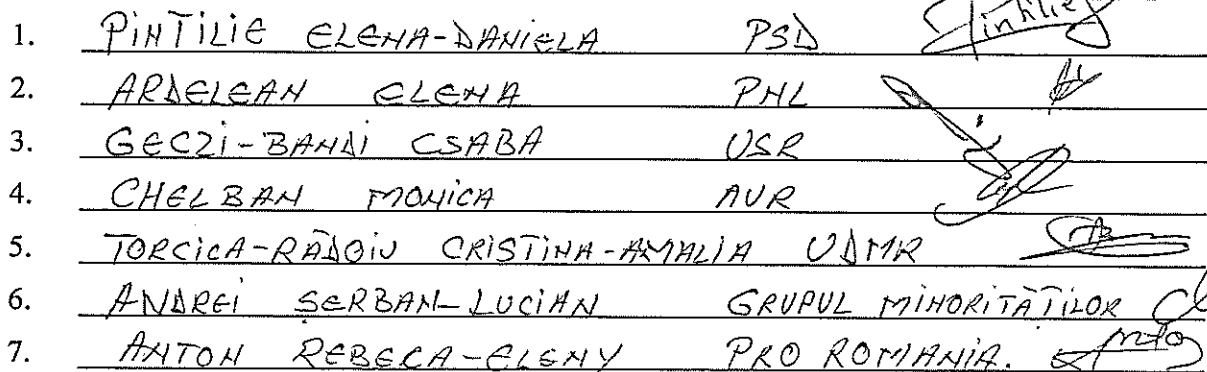 1. PINTILIE ELENA-DANIELA PSD Pintilie
2. ARDELEAN ELENA PNL
3. GECZI-BANDI CSABA USR
4. CHELBAN MONICA AUR
5. TORCICA-RĂDOIU CRISTINA-AMALIA UDMR
6. ANDREI SERBAN-LUCIAN GRUPUL MINORITĂȚILOR
7. ANTON REBECA-ELENY PRO ROMANIA.